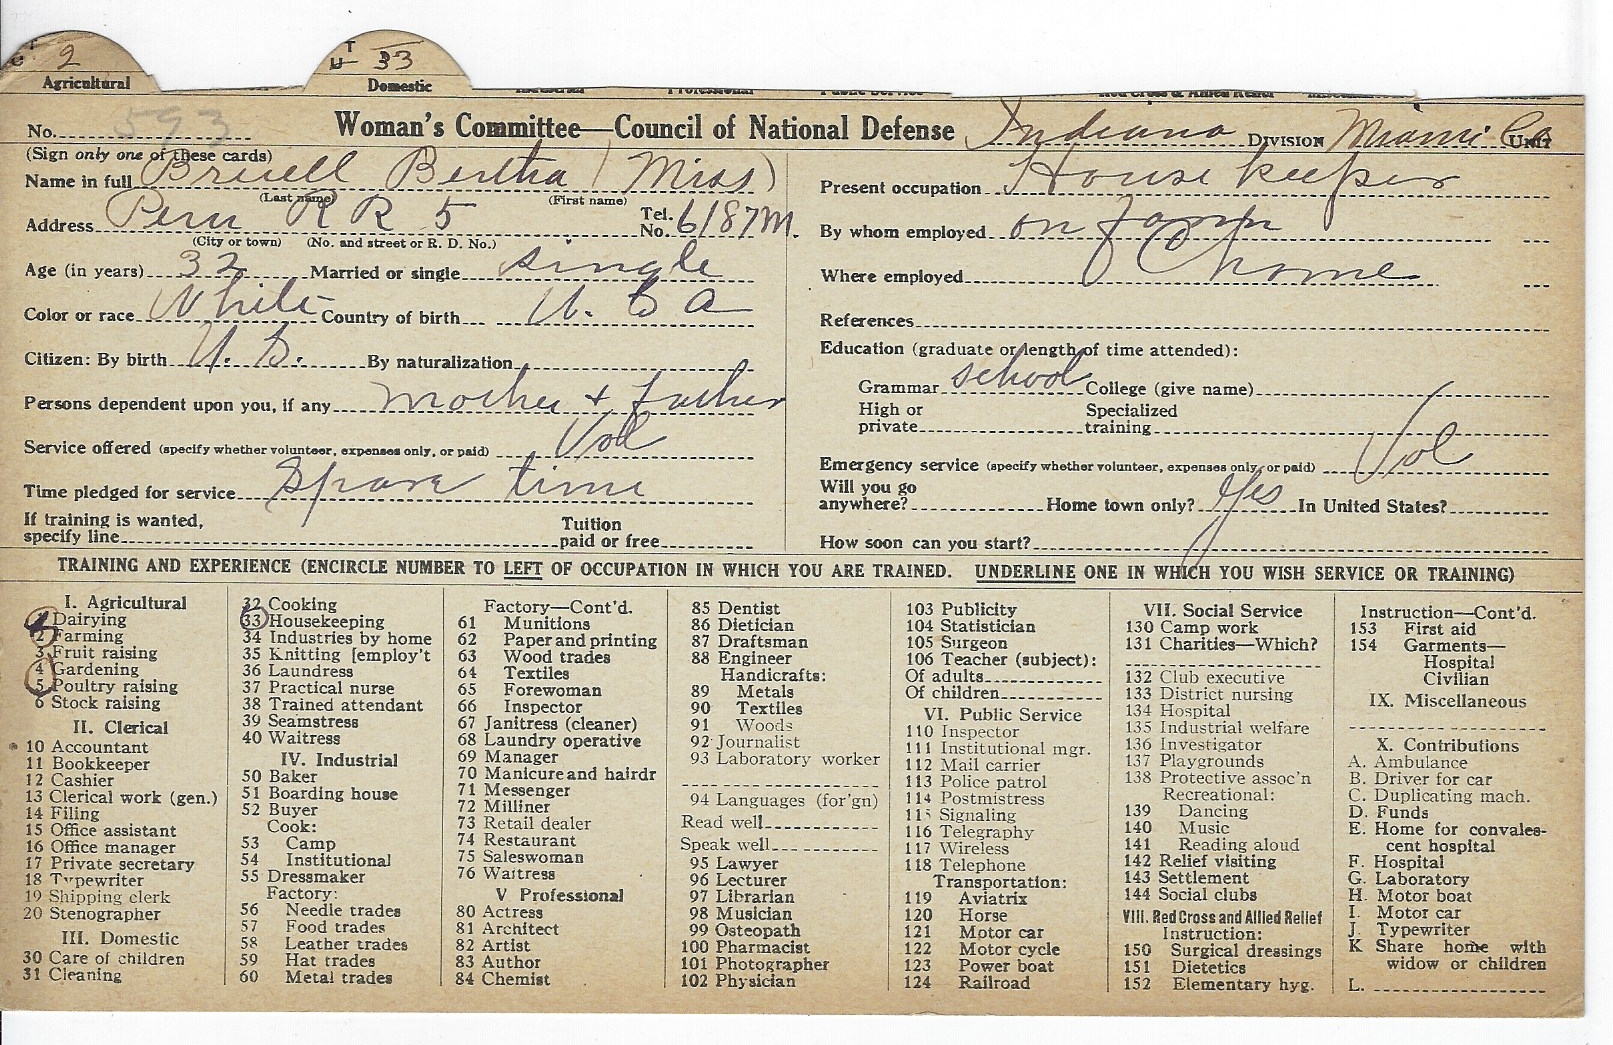 2 T U 33
Agricultural Domestic
No. 593 Woman's Committee—Council of National Defense Indiana DIVISION Miami Co UNIT
(Sign only one of these cards)
Name in full Bruell Bertha (Miss)
(Last name) (First name)
Address Peru R R 5 Tel. No. 6187M.
(City or town) (No. and street or R. D. No.)
Age (in years) 32 Married or single single
Color or race White Country of birth U. S A
Citizen: By birth U. S. By naturalization
Persons dependent upon you, if any mother + Father
Service offered (specify whether volunteer, expenses only, or paid) Vol
Time pledged for service Spare time
If training is wanted, specify line Tuition paid or free
Present occupation House keeper
By whom employed on farm
Where employed home
References
Education (graduate or length of time attended):
Grammar school College (give name)
High or private Specialized training
Emergency service (specify whether volunteer, expenses only, or paid) Vol
Will you go anywhere? Home town only? Yes In United States?
How soon can you start?
TRAINING AND EXPERIENCE (ENCIRCLE NUMBER TO LEFT OF OCCUPATION IN WHICH YOU ARE TRAINED. UNDERLINE ONE IN WHICH YOU WISH SERVICE OR TRAINING)
I. Agricultural
1 Dairying
2 Farming
3 Fruit raising
4 Gardening
5 Poultry raising
6 Stock raising
II. Clerical
10 Accountant
11 Bookkeeper
12 Cashier
13 Clerical work (gen.)
14 Filing
15 Office assistant
16 Office manager
17 Private secretary
18 Typewriter
19 Shipping clerk
20 Stenographer
III. Domestic
30 Care of children
31 Cleaning
32 Cooking
33 Housekeeping
34 Industries by home
35 Knitting [employ't
36 Laundress
37 Practical nurse
38 Trained attendant
39 Seamstress
40 Waitress
IV. Industrial
50 Baker
51 Boarding house
52 Buyer
Cook:
53 Camp
54 Institutional
55 Dressmaker
Factory:
56 Needle trades
57 Food trades
58 Leather trades
59 Hat trades
60 Metal trades
Factory—Cont'd.
61 Munitions
62 Paper and printing
63 Wood trades
64 Textiles
65 Forewoman
66 Inspector
67 Janitress (cleaner)
68 Laundry operative
69 Manager
70 Manicure and hairdr
71 Messenger
72 Milliner
73 Retail dealer
74 Restaurant
75 Saleswoman
76 Waitress
V Professional
80 Actress
81 Architect
82 Artist
83 Author
84 Chemist
85 Dentist
86 Dietician
87 Draftsman
88 Engineer
Handicrafts:
89 Metals
90 Textiles
91 Woods
92 Journalist
93 Laboratory worker
94 Languages (for'gn)
Read well
Speak well
95 Lawyer
96 Lecturer
97 Librarian
98 Musician
99 Osteopath
100 Pharmacist
101 Photographer
102 Physician
103 Publicity
104 Statistician
105 Surgeon
106 Teacher (subject):
Of adults
Of children
VI. Public Service
110 Inspector
111 Institutional mgr.
112 Mail carrier
113 Police patrol
114 Postmistress
115 Signaling
116 Telegraphy
117 Wireless
118 Telephone
Transportation:
119 Aviatrix
120 Horse
121 Motor car
122 Motor cycle
123 Power boat
124 Railroad
VII. Social Service
130 Camp work
131 Charities—Which?
132 Club executive
133 District nursing
134 Hospital
135 Industrial welfare
136 Investigator
137 Playgrounds
138 Protective assoc'n
Recreational:
139 Dancing
140 Music
141 Reading aloud
142 Relief visiting
143 Settlement
144 Social clubs
VIII. Red Cross and Allied Relief
Instruction:
150 Surgical dressings
151 Dietetics
152 Elementary hyg.
Instruction—Cont'd.
153 First aid
154 Garments—
Hospital
Civilian
IX. Miscellaneous
X. Contributions
A. Ambulance
B. Driver for car
C. Duplicating mach.
D. Funds
E. Home for convales-
cent hospital
F. Hospital
G. Laboratory
H. Motor boat
I. Motor car
J. Typewriter
K Share home with
widow or children
L.